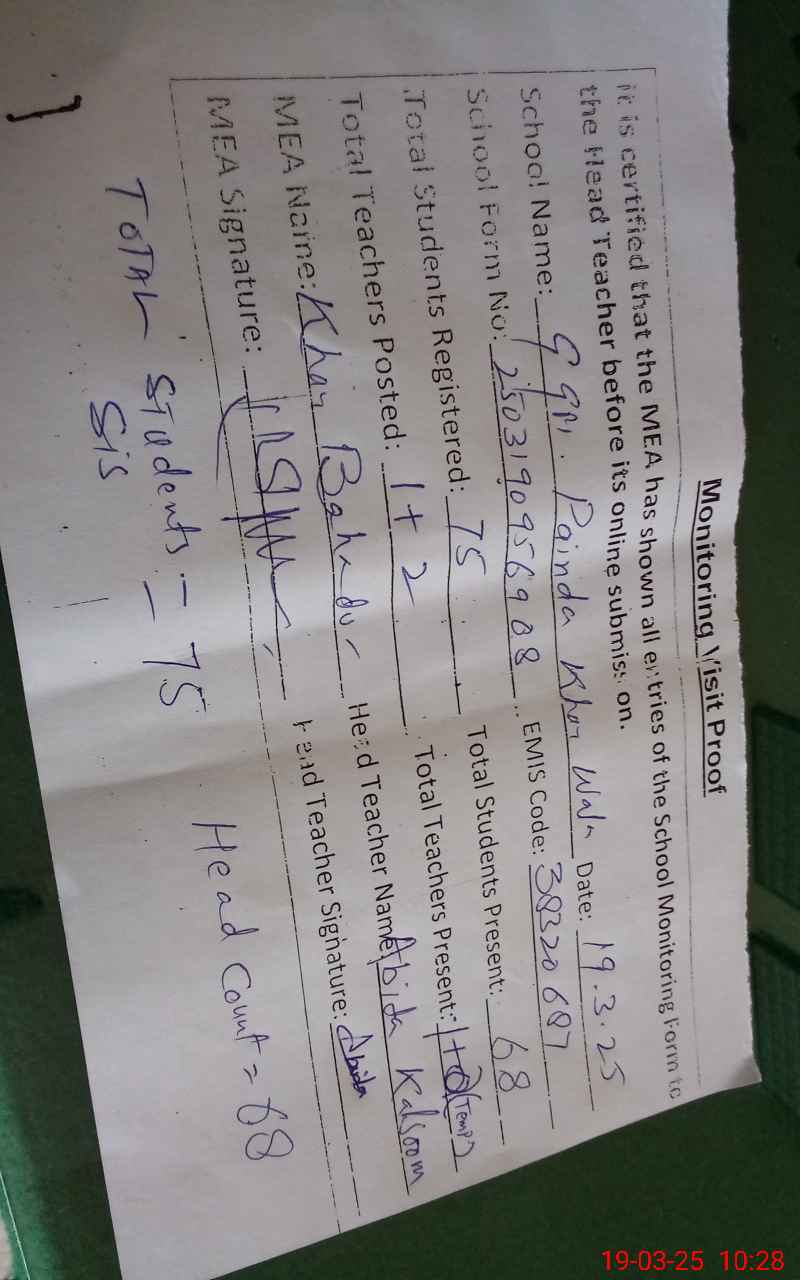 Monitoring Visit Proof
it is certified that the MEA has shown all entries of the School Monitoring Form to
the Head Teacher before its online submission.
School Name: GGPS. Painda Khan Wala Date: 19.3.25
School Form No: 2503190956908 EMIS Code: 38320687
Total Students Registered: 75 Total Students Present: 68
Total Teachers Posted: 1+2 Total Teachers Present: 1+2(Temp)
MEA Name: Khan Bahadur Head Teacher Name: Abida Kalsoom
MEA Signature: Head Teacher Signature: Abida
TOTAL Students = 75 Head Count = 68
SIS
19-03-25 10:28